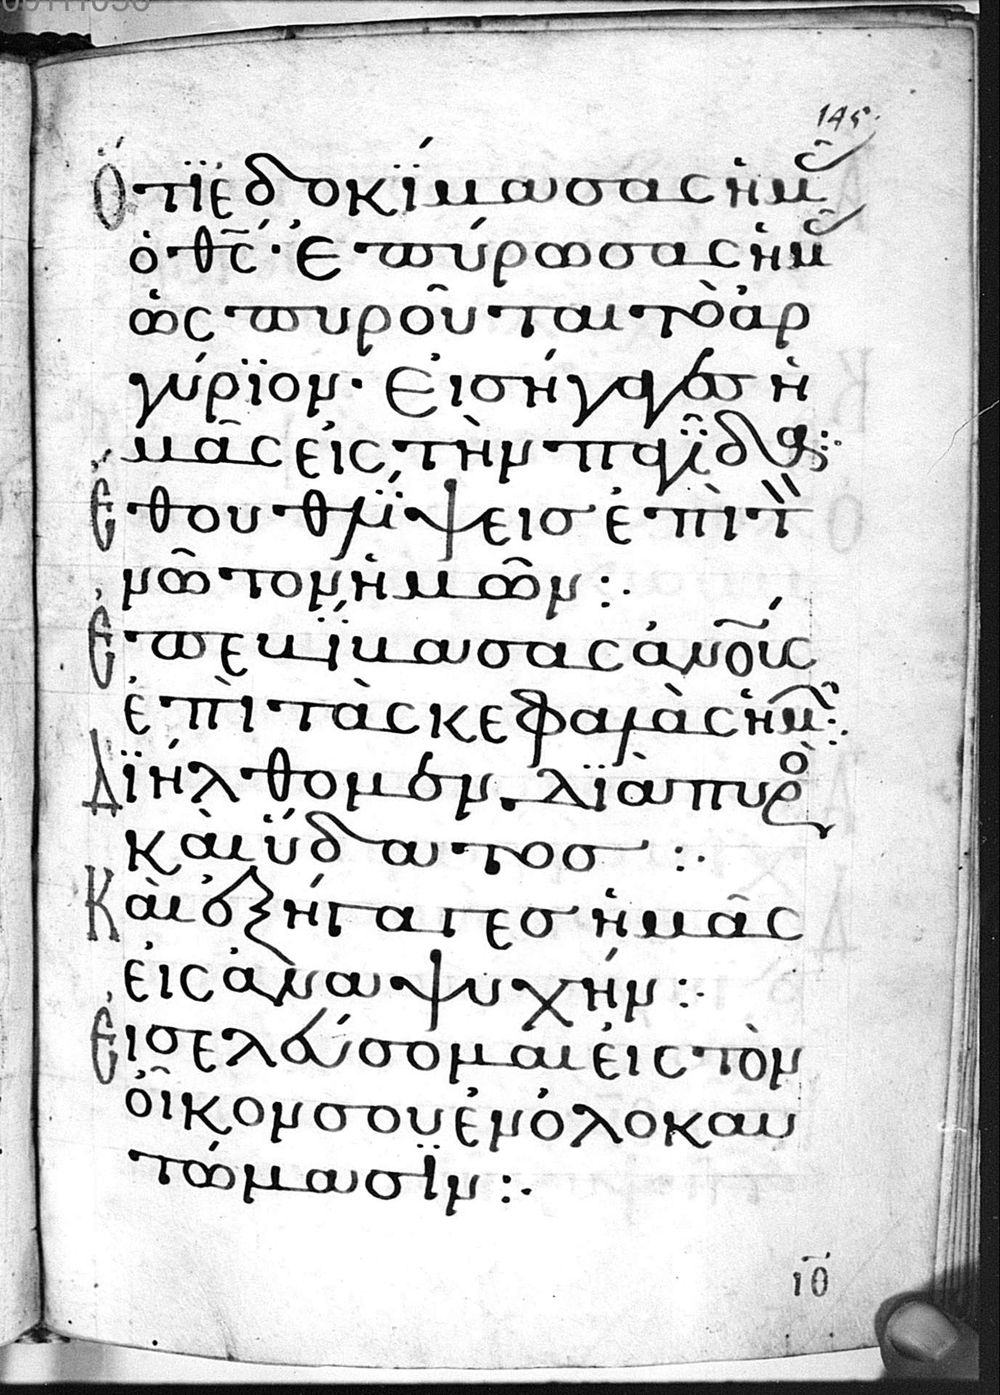 145.
Ὅτι ἐδοκίμασας ἡμᾶς
ὁ θς· Ἐπύρωσας ἡμᾶς
ὡς πυροῦται τὸ ἀρ
γύριον· Εἰσήγαγες ἡ
μᾶς εἰς τὴν παγίδα:
Ἔθου θλίψεις ἐπὶ τὸν
νῶτον ἡμῶν:·
Ἐπεβίβασας ἀνους
ἐπὶ τὰς κεφαλὰς ἡμῶν:
Διήλθομεν διὰ πυρὸς
καὶ ὕδατος :·
Καὶ ἐξήγαγες ἡμᾶς
εἰς ἀναψυχήν:·
Εἰσελεύσομαι εἰς τὸν
οἶκον σου ἐν ὁλοκαυ
τώμασιν:·
ιθ